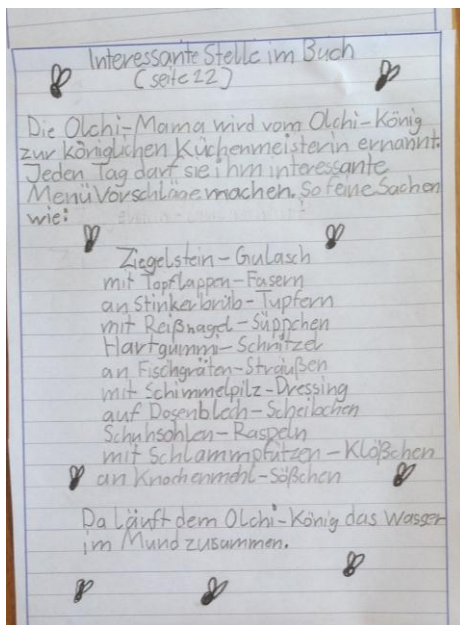 Interessante Stelle im Buch
(seite 22)
Die Olchi-Mama wird vom Olchi-König
zur königlichen Küchenmeisterin ernannt.
Jeden Tag darf sie ihm interessante
Menüvorschläge machen. So feine Sachen
wie:
Ziegelstein-Gulasch
mit Topflappen-Fasern
an Stinkerbrüh-Tupfern
mit Reißnagel-Süppchen
Hartgummi-Schnitzel
an Fischgräten-Sträußen
mit Schimmelpilz-Dressing
auf Dosenblech-Scheibchen
Schuhsohlen-Raspeln
mit Schlammpfützen-Klößchen
an Knochenmehl-Sößchen
Da läuft dem Olchi-König das Wasser
im Mund zusammen.